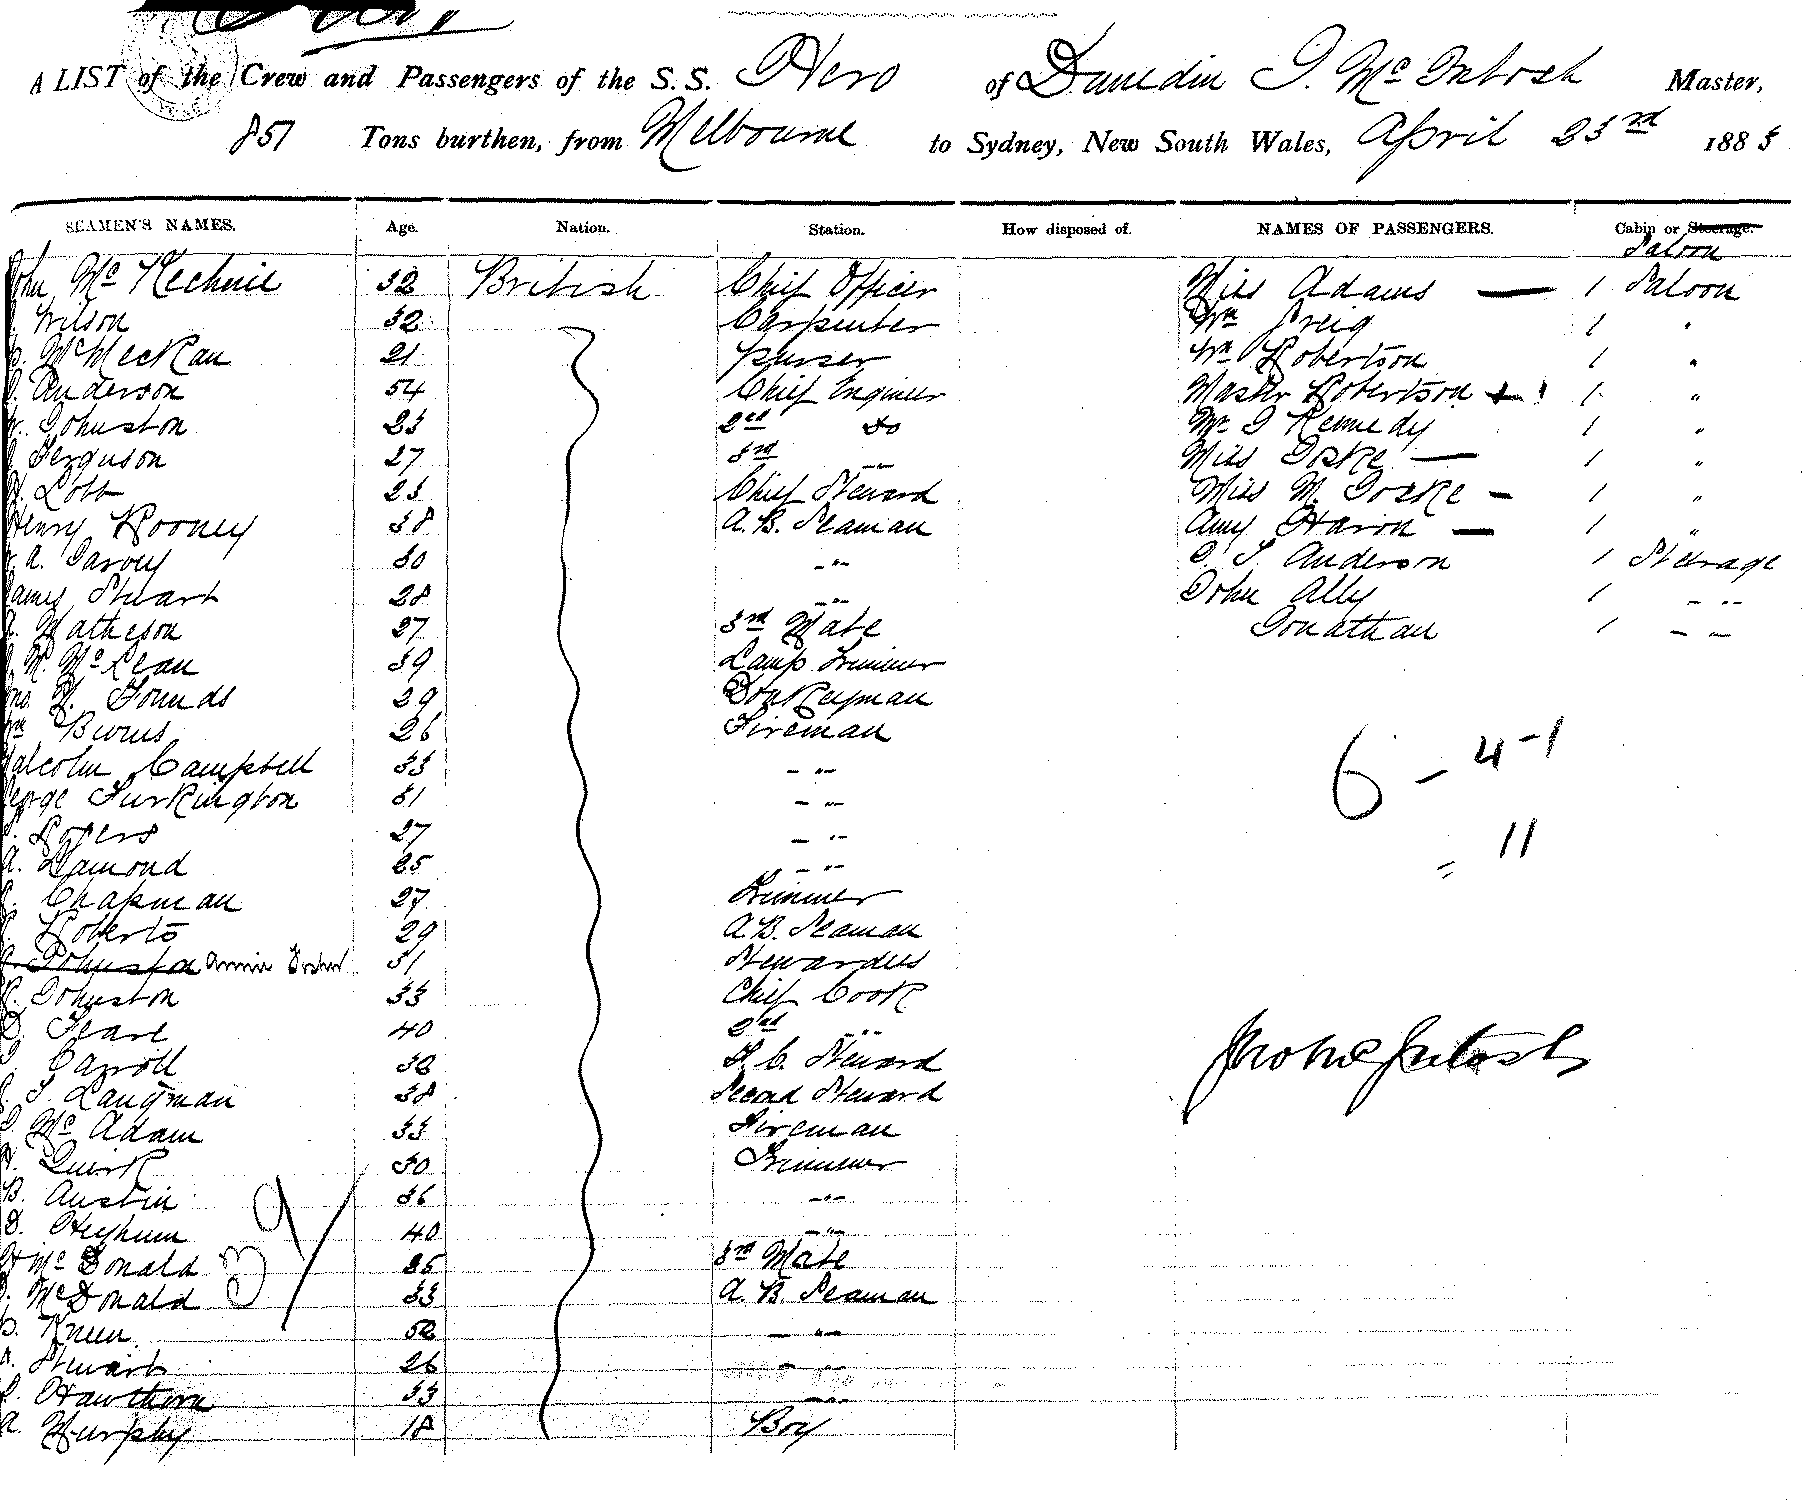 A LIST of the Crew and Passengers of the S.S. Hero of Dunedin J. McIntosh Master,
857 Tons burthen, from Melbourne to Sydney, New South Wales, April 23rd 1883
SEAMEN'S NAMES. Age. Nation. Station. How disposed of. NAMES OF PASSENGERS. Cabin or Steerage.
Saloon
John McKechnie 32 British Chief Officer Miss Adams — 1 Saloon
Wilson 32 Carpenter Wm Greig 1 "
McMeckan 21 purser Wm Robertson 1 "
Anderson 54 Chief Engineer Master Robertson 1 "
Johnston 23 2nd do Mr J Kennedy 1 "
Ferguson 27 3rd -- Miss Joske — 1 "
Lobb 23 Chief Steward Miss M. Joske - 1 "
Henry Rooney 38 A.B. Seaman Amy Haron — 1 "
A. Garvey 30 -"- Anderson 1 Steerage
James Stuart 28 -"- John Ally 1 - "-
Matheson 27 3rd Mate Jonathan 1 - -
McLean 39 Lamp Trimmer
29 Donkeyman
Wm Burns 26 Fireman
Malcolm Campbell 33 - "-
George Turkington 31 - "-
Rogers 27 - "-
A. Lamond 25 - "-
Chapman 27 Trimmer
Roberts 29 A.B. Seaman
Johnston Annie 31 Stewardess
Johnston 33 Chief Cook
40 2nd -"-
Carroll 32 F.C. Steward
Langman 38 Second Steward
McAdam 33 Fireman
Quirk 30 Trimmer
B. Austin 36 -"-
40 -"-
McDonald 25 3rd Mate
McDonald 33 A.B. Seaman
Kneen 52 - "-
Stewart 26 - "-
Hawthorn 33 -"-
A. Murphy 18 Boy
6 - 4 - 1
= 11
39
Jno McIntosh